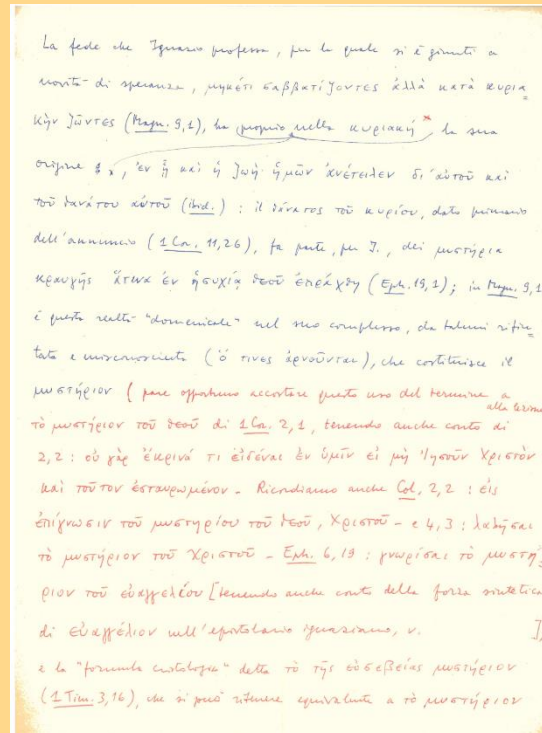 La fede che Ignazio professa, per la quale si è giunti a
novità di speranza, μηκέτι σαββατίζοντες ἀλλὰ κατὰ κυρια=
κὴν ζῶντες (Magn. 9,1), ha proprio nella κυριακή, la sua
origine, ἐν ᾗ καὶ ἡ ζωὴ ἡμῶν ἀνέτειλεν δι' αὐτοῦ καὶ
τοῦ θανάτου αὐτοῦ (ibid.) : il θάνατος τοῦ κυρίου, dato primario
dell'annuncio (1 Cor. 11,26), fa parte, per I., dei μυστήρια
κραυγῆς ἅτινα ἐν ἡσυχίᾳ θεοῦ ἐπράχθη (Eph. 19,1); in Magn. 9,1
è questa realtà "domenicale" nel suo complesso, da taluni rifiu=
tata e misconosciuta (ὅ τινες ἀρνοῦνται), che costituisce il
μυστήριον (pare opportuno accostare questo uso del termine a
alla lezione
τὸ μυστήριον τοῦ θεοῦ di 1 Cor. 2,1, tenendo anche conto di
2,2 : οὐ γὰρ ἔκρινά τι εἰδέναι ἐν ὑμῖν εἰ μὴ Ἰησοῦν Χριστὸν
καὶ τοῦτον ἐσταυρωμένον - Ricordiamo anche Col. 2,2 : εἰς
ἐπίγνωσιν τοῦ μυστηρίου τοῦ θεοῦ, Χριστοῦ - e 4,3 : λαλῆσαι
τὸ μυστήριον τοῦ Χριστοῦ - Eph. 6,19 : γνωρίσαι τὸ μυστή=
ριον τοῦ εὐαγγελίου [tenendo anche conto della forza sintetica
di εὐαγγέλιον nell'epistolario ignaziano, v. ],
e la "formula cristologica" detta τὸ τῆς εὐσεβείας μυστήριον
(1 Tim. 3,16), che si può ritenere equivalente a τὸ μυστήριον